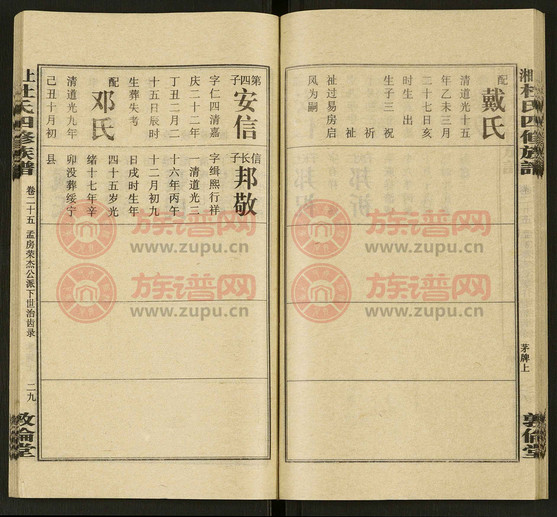 湘杜氏四修族譜
茅牌上
敦倫堂
配戴氏
清道光十五
年乙未三月
二十七日亥
时生 出
生子三 祝
祉 祈
祉过易房启
风为嗣
第四子安信
字仁四清嘉
庆二十二年
丁丑二月二
十五日辰时
生葬失考
配邓氏
清道光九年
己丑十月四
信长子邦敬
字缉熙行祥
一 清道光二
十六年丙午
十二月初九
日戌时生年
四十五岁光
绪十七年辛
卯没葬绥宁
县
上杜氏四修族譜
卷二十五
孟房荣杰公派下世治齿录
二九
敦倫堂
族谱网
www.zupu.cn
族谱网
www.zupu.cn
族谱网
www.zupu.cn
族谱网
www.zupu.cn